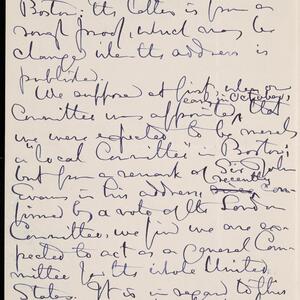 Boston: the latter is from a
rough proof, which may be
changed when the address is
published.
We suppose at first, when our
early in October,
Committee was appointed, that
we were expected to be merely
a "local Committee" in Boston;
but from a remark of Sir John
Evans in his address, recently con-
firmed by a vote of the London
Committee, we find we are ex-
pected to act as a general Com-
mittee for the whole United
States. It is in regard to this